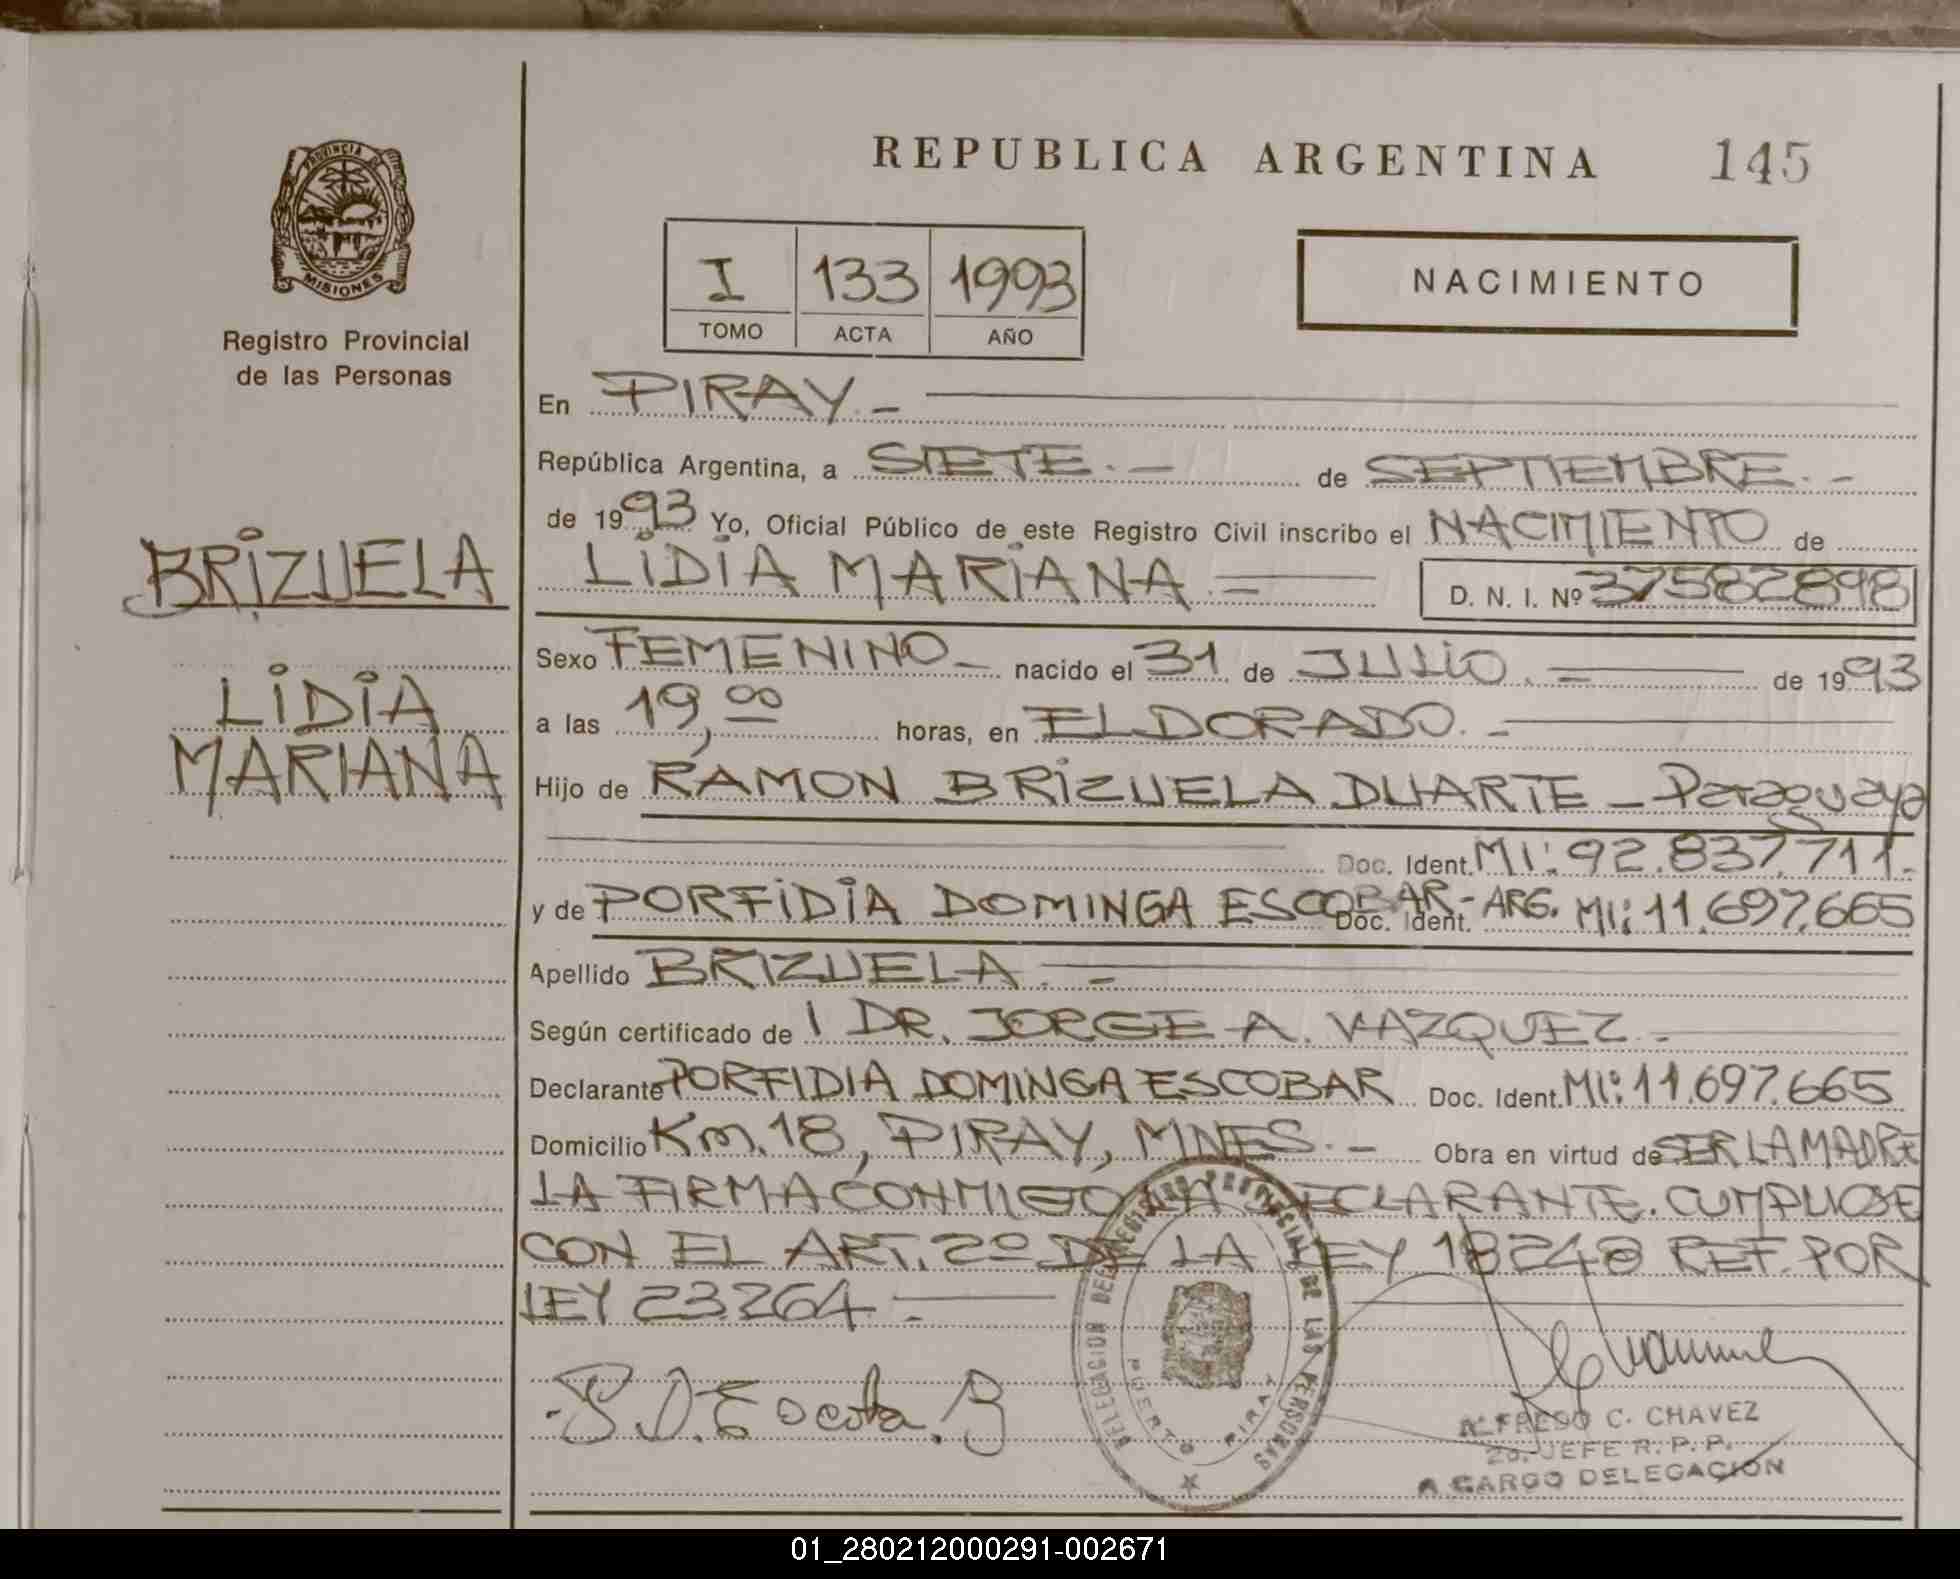 REPUBLICA ARGENTINA 145
PROVINCIA DE
MISIONES
Registro Provincial
de las Personas
I 133 1993
TOMO ACTA AÑO
NACIMIENTO
En PIRAY.-
República Argentina, a SIETE.- de SEPTIEMBRE.-
de 1993 Yo, Oficial Público de este Registro Civil inscribo el NACIMIENTO de
BRIZUELA
LIDIA MARIANA.- D. N. I. Nº 37582898
Sexo FEMENINO- nacido el 31 de JULIO.- de 1993
LIDIA
MARIANA
a las 19,00 horas, en ELDORADO.-
Hijo de RAMON BRIZUELA DUARTE - Paraguaya
Doc. Ident. MI: 92.837.711.
y de PORFIDIA DOMINGA ESCOBAR- ARG. Doc. Ident. MI: 11.697.665
Apellido BRIZUELA.-
Según certificado de 1 DR. JORGE A. VAZQUEZ.-
Declarante PORFIDIA DOMINGA ESCOBAR Doc. Ident. MI: 11.697.665
Domicilio Km. 18, PIRAY, MNES.- Obra en virtud de SER LA MADRE
LA FIRMA CONMIGO LA DECLARANTE. CUMPLIOSE
CON EL ART. 2º DE LA LEY 18248 REF. POR
LEY 23.264.-
DELEGACION DEL REGISTRO PROVINCIAL DE LAS PERSONAS
PUERTO PIRAY
ALFREDO C. CHAVEZ
2o. JEFE R. P. P.
A CARGO DELEGACIÓN
01_280212000291-002671